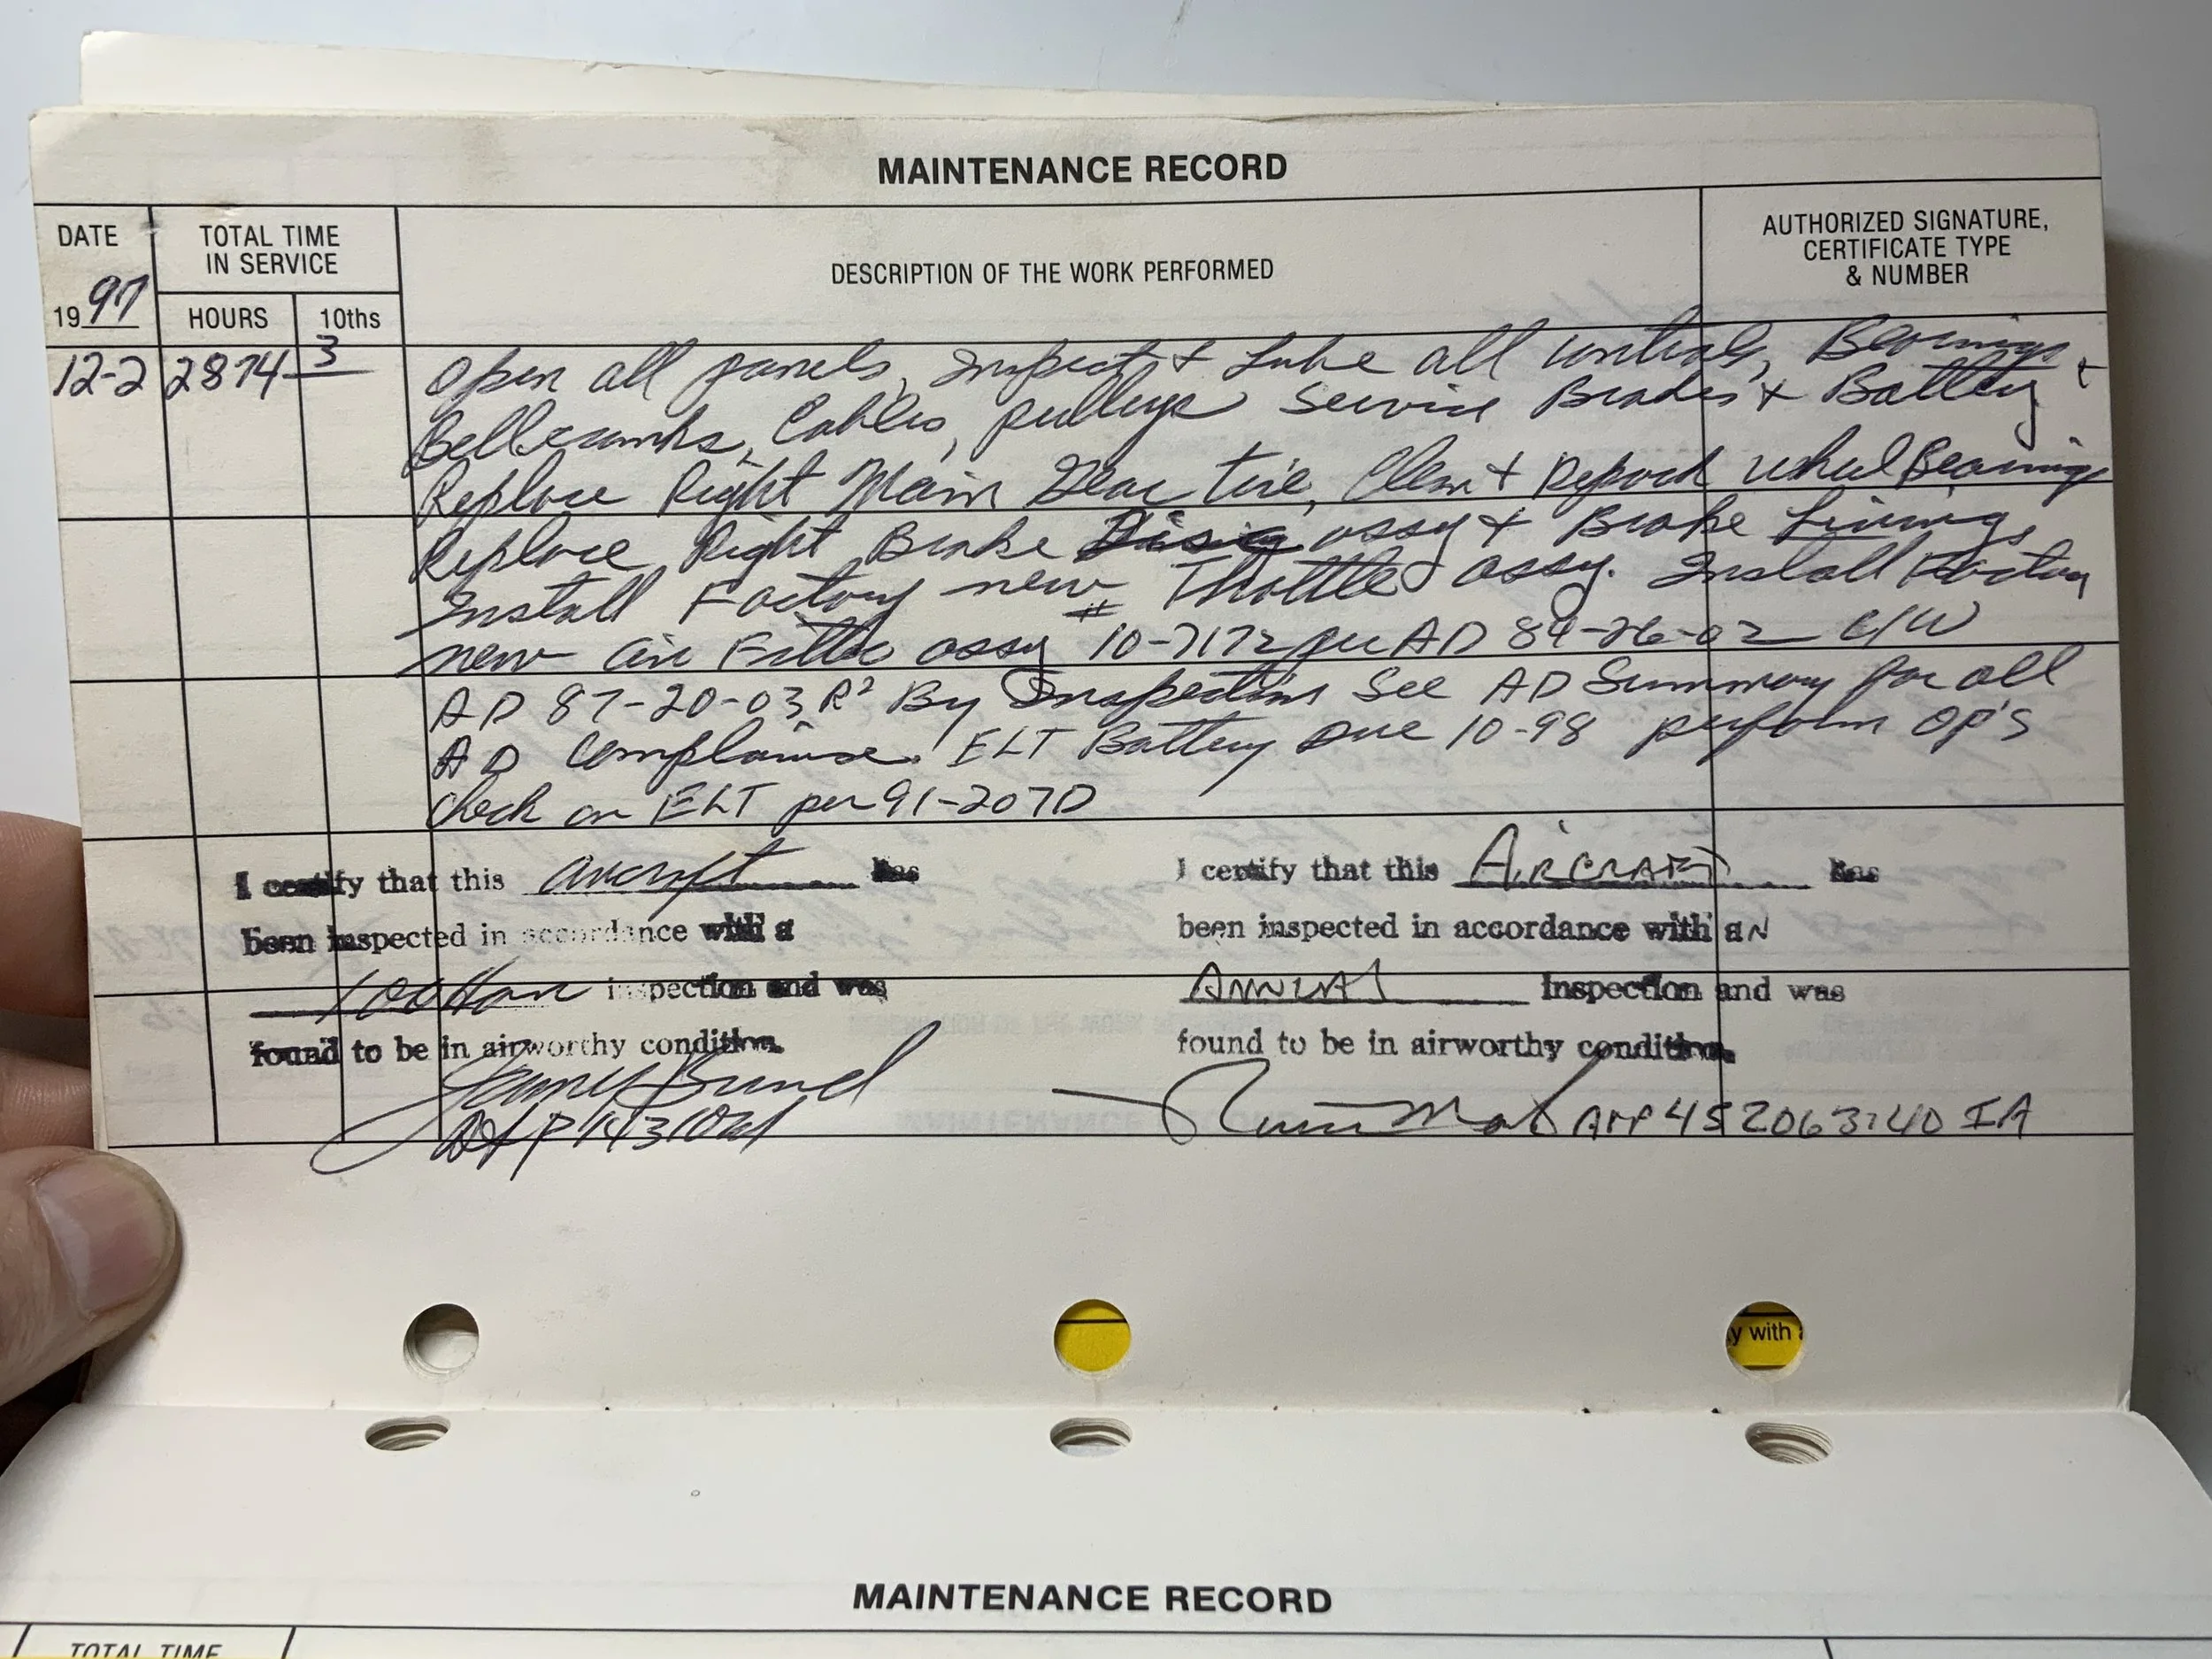 MAINTENANCE RECORD
DATE
TOTAL TIME
IN SERVICE
DESCRIPTION OF THE WORK PERFORMED
AUTHORIZED SIGNATURE,
CERTIFICATE TYPE
& NUMBER
1997
HOURS
10ths
12-2 2874 3 Open all panels, Inspect + Lube all controls, Bearings +
Bellcranks, Cables, pulleys Service Brakes + Battery
Replace Right Main Gear tire, Clean + Repack wheel Bearings
Replace Right Brake assy + Brake Linings,
Install Factory new Throttle assy. Install Factory
new air Filter assy # 10-7172 per AD 84-26-02 C/W
AD 87-20-03 R2 By Inspection See AD Summary for all
AD Compliance. ELT Battery Due 10-98 perform op's
check on ELT per 91-207D
I certify that this aircraft has
been inspected in accordance with a
100 Hour inspection and was
found to be in airworthy condition.
A&P
I certify that this AIRCRAFT has
been inspected in accordance with aN
ANNUAL Inspection and was
found to be in airworthy condition.
452063740 IA
y with
MAINTENANCE RECORD
TOTAL TIME